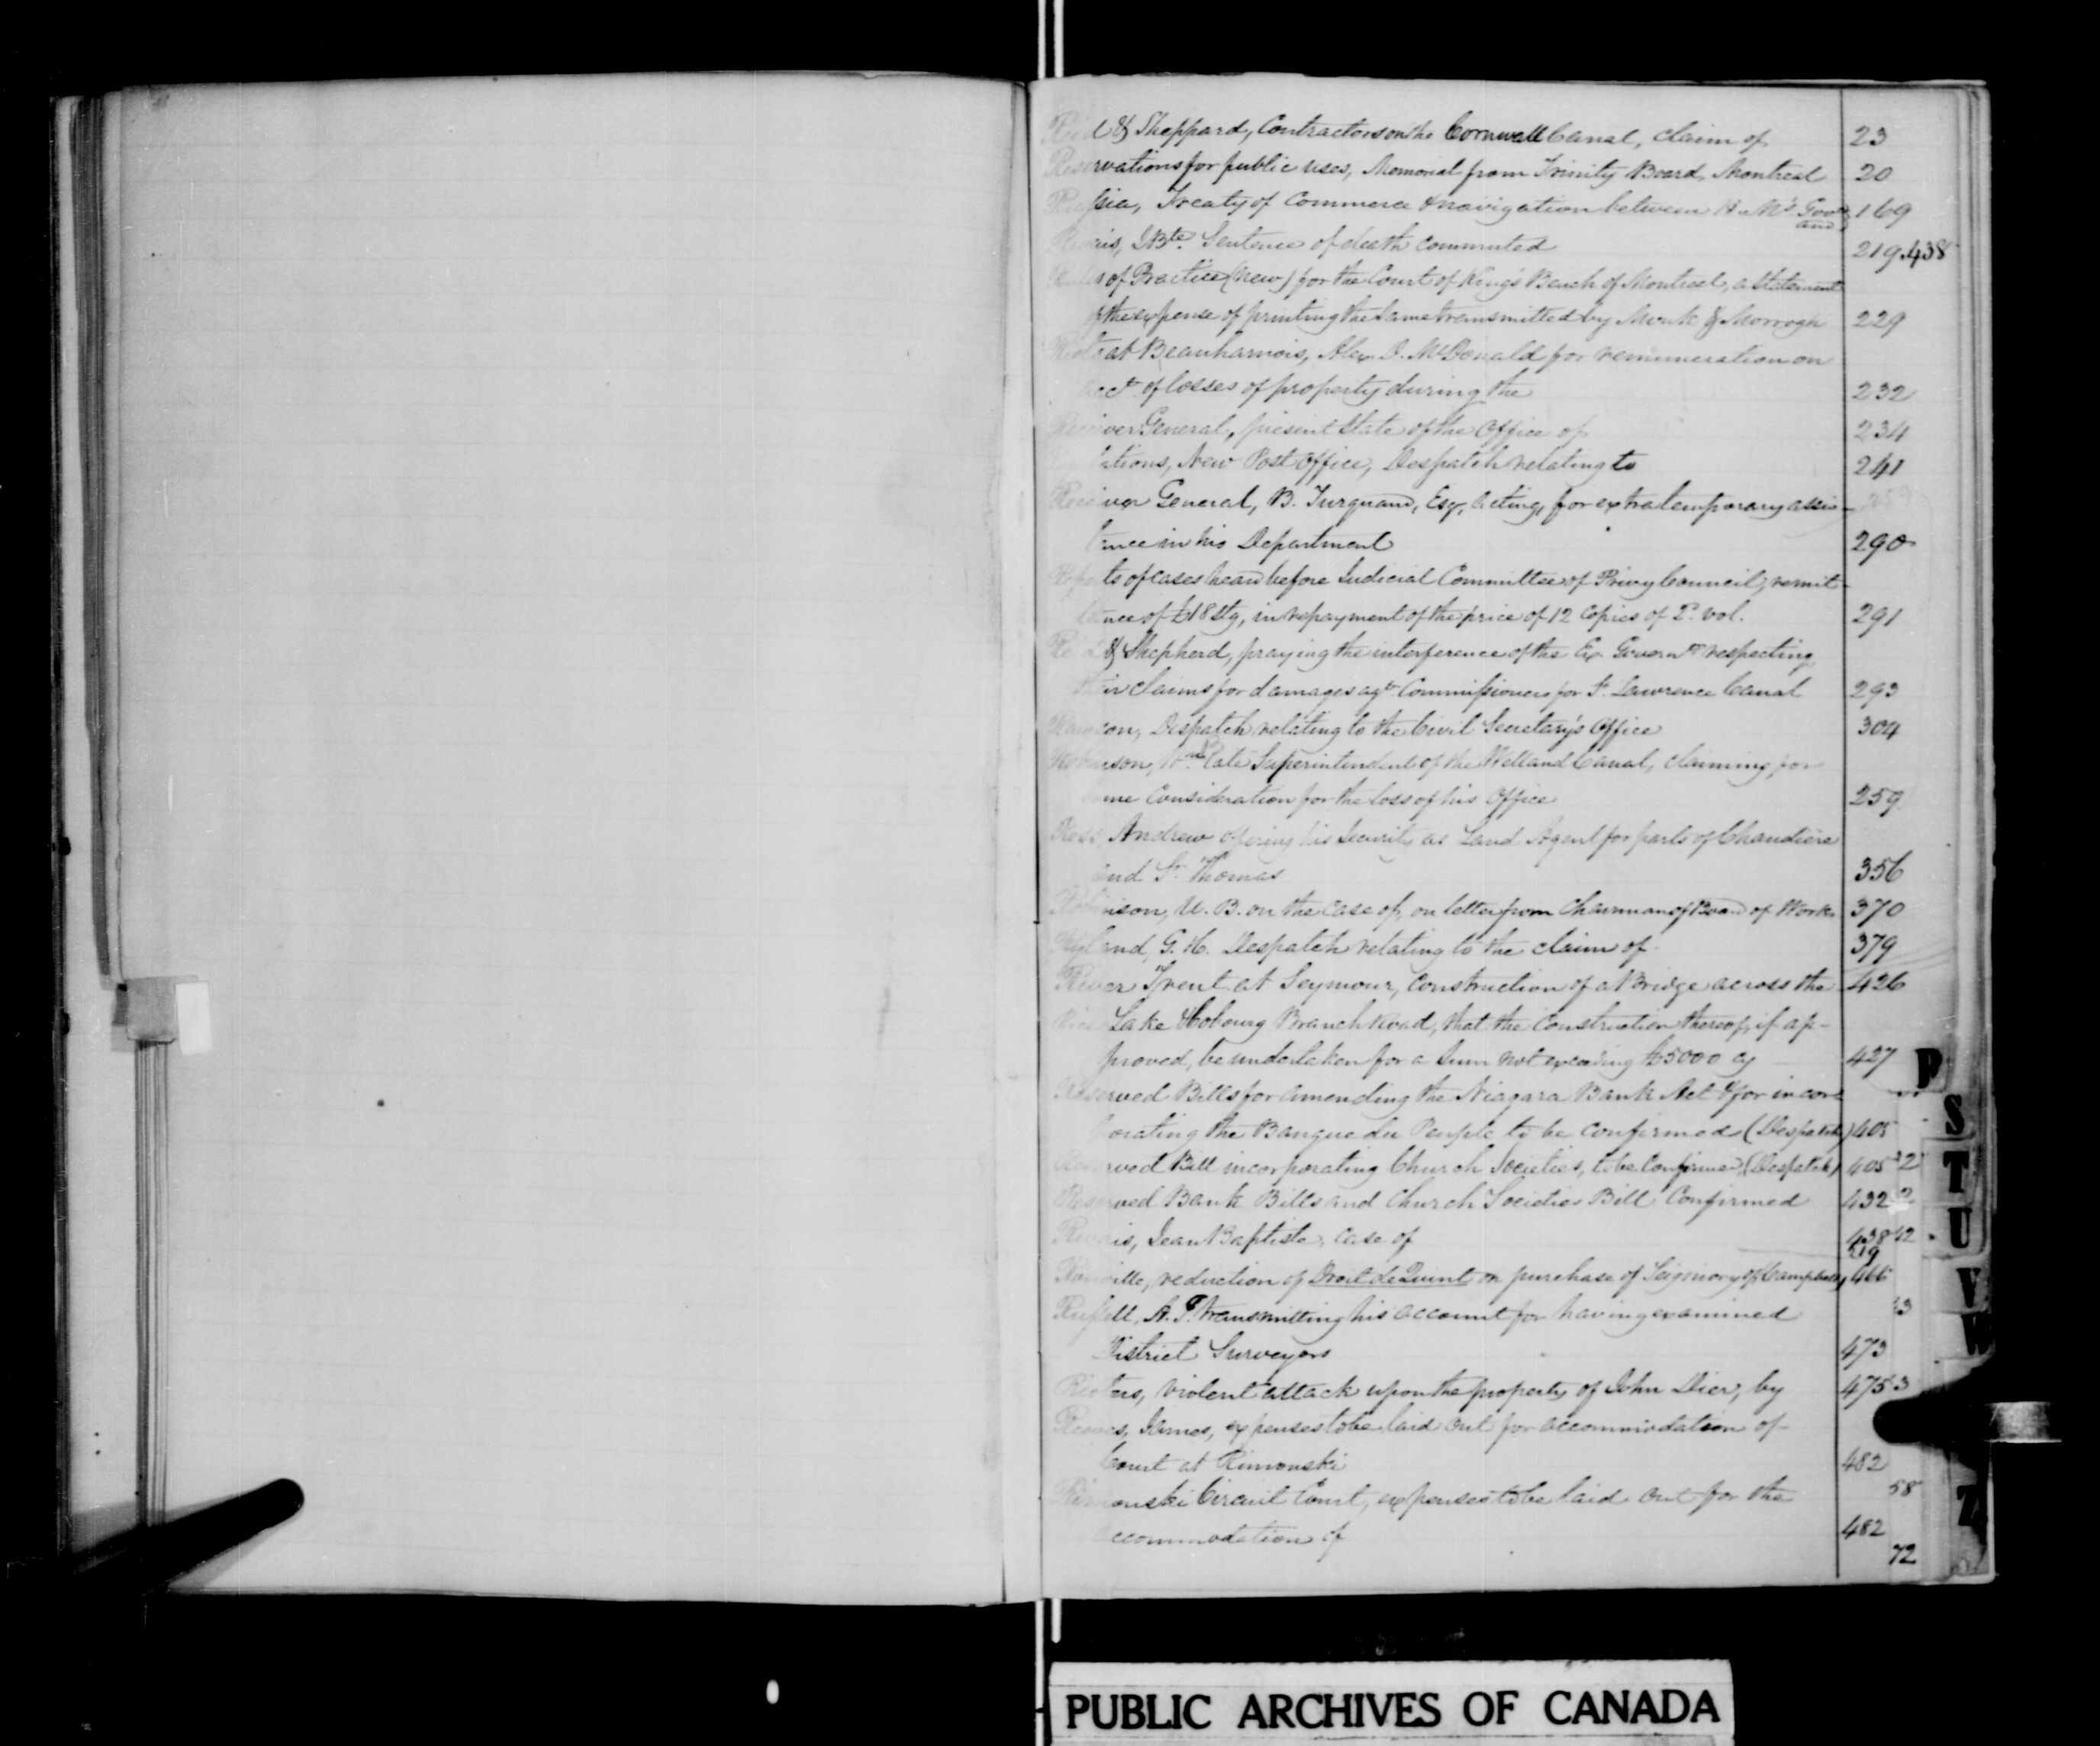 Reid & Sheppard, Contractors on the Cornwall Canal, claim of 23
Reservations for public uses, Memorial from Trinity Board, Montreal 20
Russia, Treaty of Commerce & navigation between H. M's Govt and 169
J. Bte. Sentence of death commuted 219.438
Rules of Practice (New) for the Court of King's Bench of Montreal, a statement
of the expense of printing the same transmitted by Monk & Morrogh 229
Riots at Beauharnois, Alex. D. McDonald for remuneration on
acct. of losses of property during the 232
Receiver General, present state of the Office of 234
Regulations, New Post Office, Despatch relating to 241
Receiver General, B. Turquand, Esq, acting, for extra temporary assis-
tance in his Department 290
Reports of cases heard before Judicial Committee of Privy Council, remit-
tance of £18 stg, in repayment of the price of 12 Copies of 2d. vol. 291
Reid & Shepherd, praying the interference of the Ex. Governmt respecting
their claims for damages agt. Commissioners for St. Lawrence Canal 293
Rawson, Despatch relating to the Civil Secretary's Office 304
Robinson, late Superintendent of the Welland Canal, claiming for
some Consideration for the loss of his Office 259
Ross Andrew offering his Security as Land Agent for parts of Chaudière
and St. Thomas 356
Robinson, W. B. on the case of, on letter from Chairman of Board of Works 370
Ryland, G. H. Despatch relating to the claim of 379
River Trent at Seymour, Construction of a Bridge across the 426
Rice Lake & Cobourg Branch Road, that the Construction thereof, if ap-
proved, be undertaken for a Sum not exceeding £5000 cy 427
Reserved Bills for amending the Niagara Bank Act & for incor-
porating the Banque du Peuple to be confirmed (Despatch) 405
Reserved Bill incorporating Church Societies, to be Confirmed, (Despatch) 405 2
Reserved Bank Bills and Church Societies Bill Confirmed 432
Jean Baptiste, case of 438 219
Rouville, reduction of Droit de Quint on purchase of Seigniory of 466
Russell, A. J. transmitting his account for having examined
District Surveyors 473
Rioters, violent attack upon the property of John Dier, by 475 3
Reeves, James, expenses to be laid out for accommodation of
Court at Rimouski 482
Rimouski Circuit Court, expenses to be laid out for the 58
accommodation of 482
72
P
S
T
U
V
W
Z
PUBLIC ARCHIVES OF CANADA